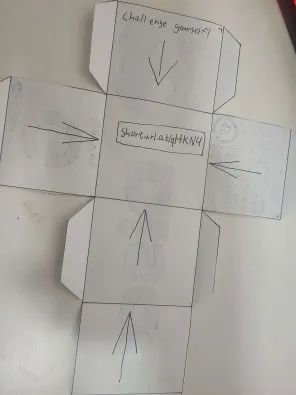 Challenge yourself!
Shorturl.at/gHKN4